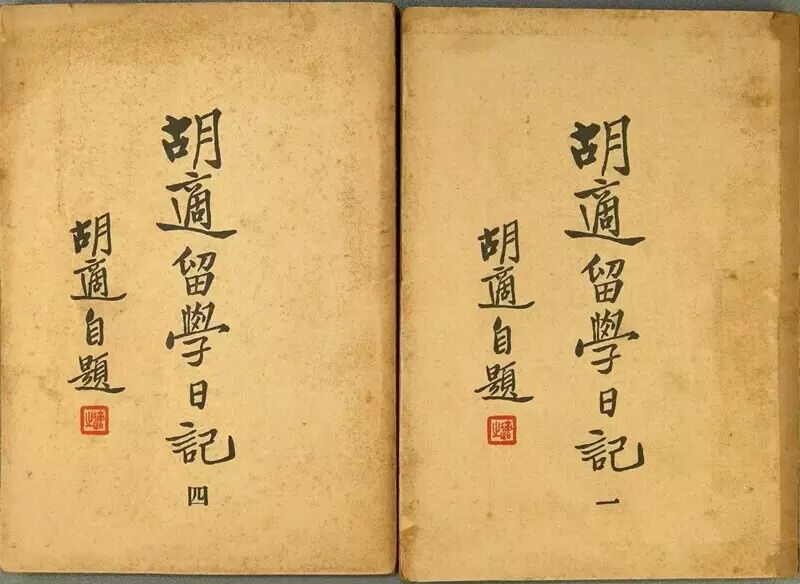 胡適留學日記
一
胡適自題
胡適留學日記
四
胡適自題